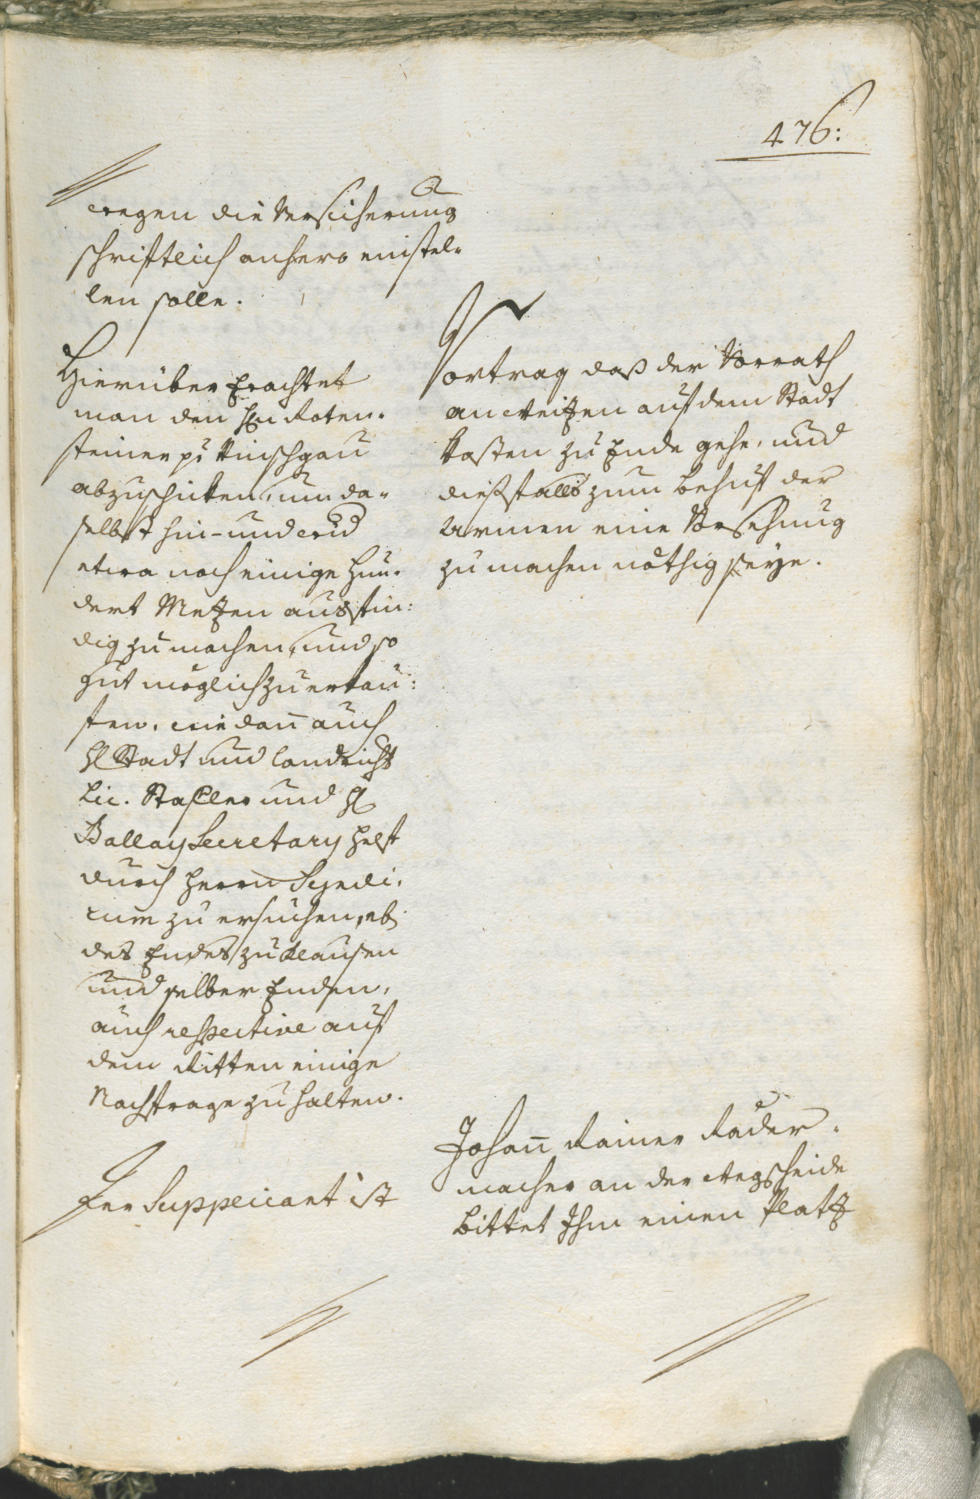 476:
wegen die Versicherung
schriftlich anhero einstel-
len solle.
Hierüber Erachtet
man den Hn Roten-
steiner p: Vinschgau
abzuschicken, um da-
selbst hin- und wid
etwa noch einige Hun-
dert Metzen ausfin:
dig zu machen, und so
gut möglich zu erkau:
fen. wie dañ auch
H Stadt und Landricht
Lic. Stafler und H
Ballay Secretary Hess
durch Herrn Syndi-
cum zu ersuchen, ob
des Endes zu Klausen
und selber Enden,
auch respective auf
dem Ritten einige
Nachfrage zu halten.
Der Supplicant ist
Vortrag daß der Vorrath
an Weitzen auf dem Stadt
kasten zu Ende gehe, und
diesfalls zum behuf der
Armen eine Vorsehung
zu machen nöthig seye.
Johañ Rainer Rader-
macher an der Wegscheide
bittet Ihm einen Platz